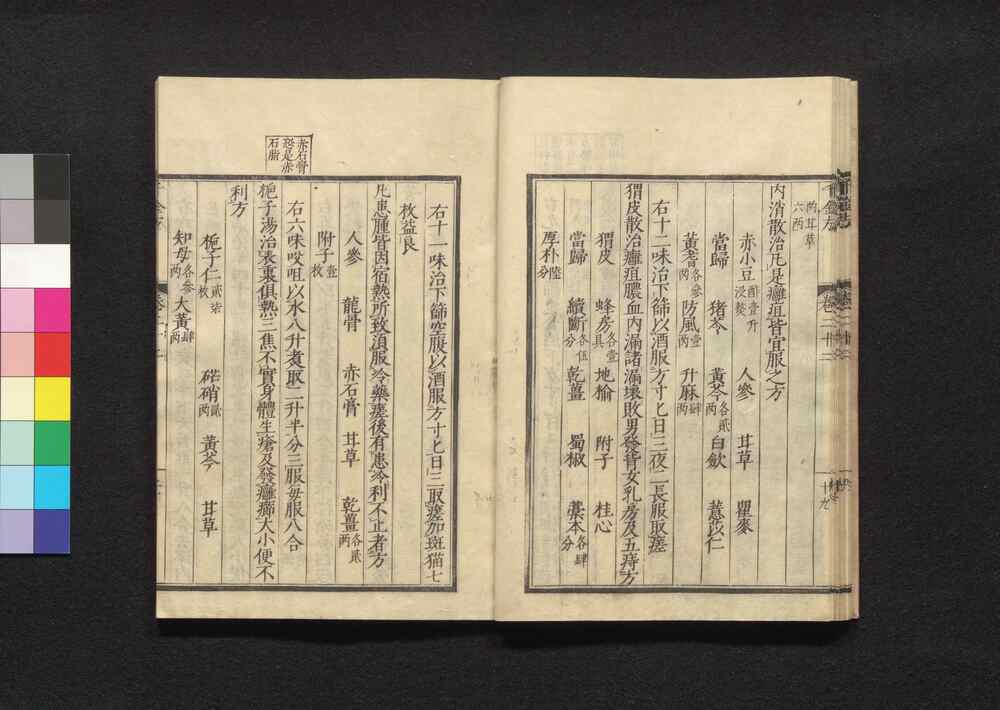 甘草
六两
内消散治凡是癰疽皆宜服之方
赤小豆醋壹升浸熬 人參 甘草 瞿麥
當歸 猪苓 黄芩各貳两 白歛 薏苡仁
黄耆各參两 防風壹两 升麻肆两
右十二味治下篩以酒服方寸匕日三夜二長服取瘥
猬皮散治癰疽膿血内漏諸漏壞敗男發背女乳房及五痔方
猬皮 蜂房各壹具 地榆 附子 桂心
當歸 續斷各伍分 乾薑 蜀椒 藁本各肆分
厚朴陸分
卷二十二
十九
右十一味治下篩空腹以酒服方寸匕日三取瘥加斑猫七
枚益良
凡患腫皆因宿熱所致須服冷藥瘥後有患冷利不止者方
人參 龍骨 赤石膏 甘草 乾薑各貳两
附子壹枚
右六味㕮咀以水八升煮取二升半分三服每服八合
梔子湯治表裏俱熱三焦不實身體生瘡及發癰癤大小便不
利方
梔子仁貳柒枚 硭硝貳两 黄芩 甘草
知母各參两 大黄肆两
赤石膏
恐是赤
石脂